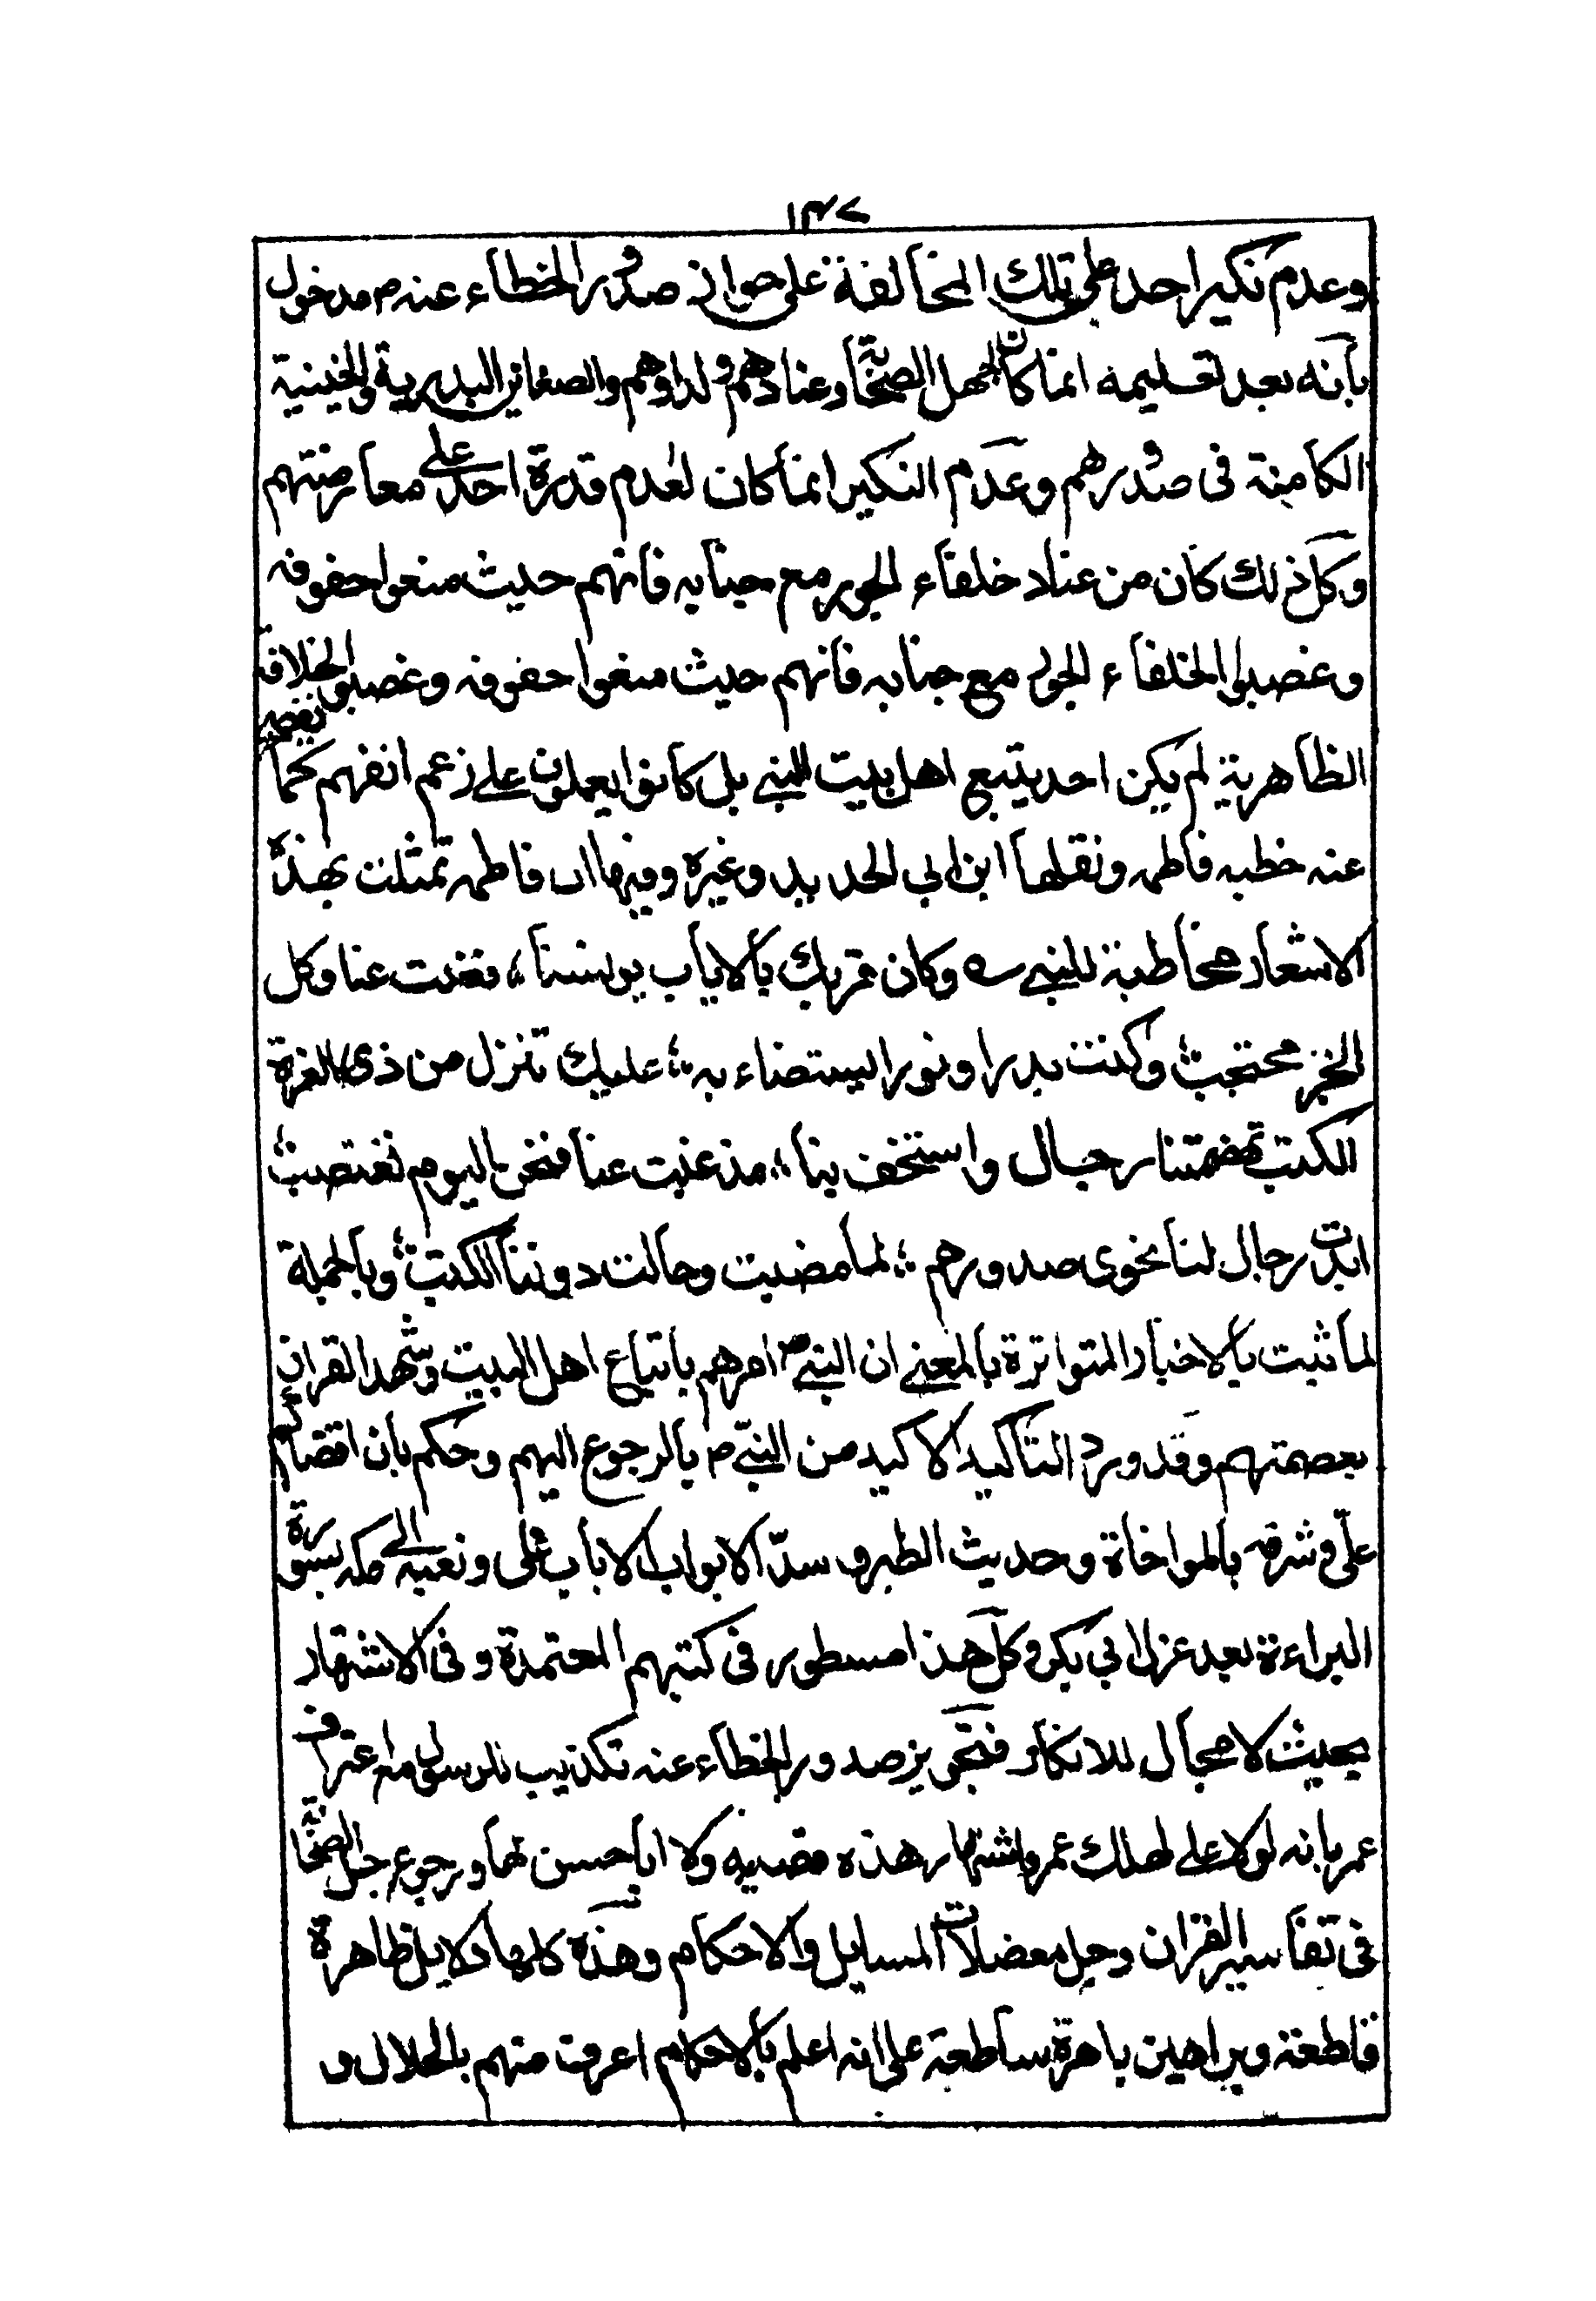 ١٣٧
وعدم نكير احد على تلك المخالفة على جواز صدور الخطاء عنه م مدخول
بانه بعد تسليمه انما كان لجهل الصحابة وعنادهم ولدادهم والضغاين البدرية والحنينية
الكامنة فى صدورهم وعدم النكير انما كان لعدم قدرة احد على معارضتهم
وكل ذلك كان من عناد خلفاء الجور مع جنابه فانهم حيث منعوا حقوقه
وغصبوا الخلفاء الجور مع جنابه فانهم حيث منعوا حقوقه وغصبوا الخلافة
الظاهرية لم يكن احد يتبع اهل بيت النبي بل كانوا يعملون على زعم انفهم كما
عنه خطبه فاطمه ونقلها ابن ابي الحديد وغيره وفيها ان فاطمه تمثلت بهذه
الاشعار مخاطبة للنبي وكان قربك بالايات يونسنا، فغبت عنا وكل
الخير محتجب، وكنت بدرا ونورا يستضاء به، عليك تنزل من ذى العزة
الكتب تهضمتنا رجال واستخف بنا، مذ غبت عنا فنحن اليوم نغتصب،
ابدت رجال لنا نحوى صدورهم، لما مضيت وحالت دوننا الكتب، وبالجملة
لما ثبت بالاخبار المتواترة بالمعنى ان النبي ص امرهم باتباع اهل البيت وشهد القران
بعصمتهم وقد ورد التاكيد الاكيد من النبي م بالرجوع اليهم وحكم بان اقضاكم
علي وشرفه بالمواخاة وحديث الطير وسدّ الابواب الا باب على وبعثه الى مكه بسورة
البراءة بعد عزل ابي بكر وكل هذا مسطور فى كتبهم المعتمدة وفى الاشتهار
بحيث لا مجال للانكار فتجويز صدور الخطاء عنه تكذيب للرسول مع اعتراف
عمر بانه لولا على لهلك عمر واشتهار هذه قضيه ولا ابا حسن لها ورجوع جل الصحابة
فى تفاسير القران وحل معضلات المسايل والاحكام وهذه كلها دلايل ظاهرة
قاطعة وبراهين باهرة ساطعة على انه اعلم بالاحكام اعرف منهم بالحلال و